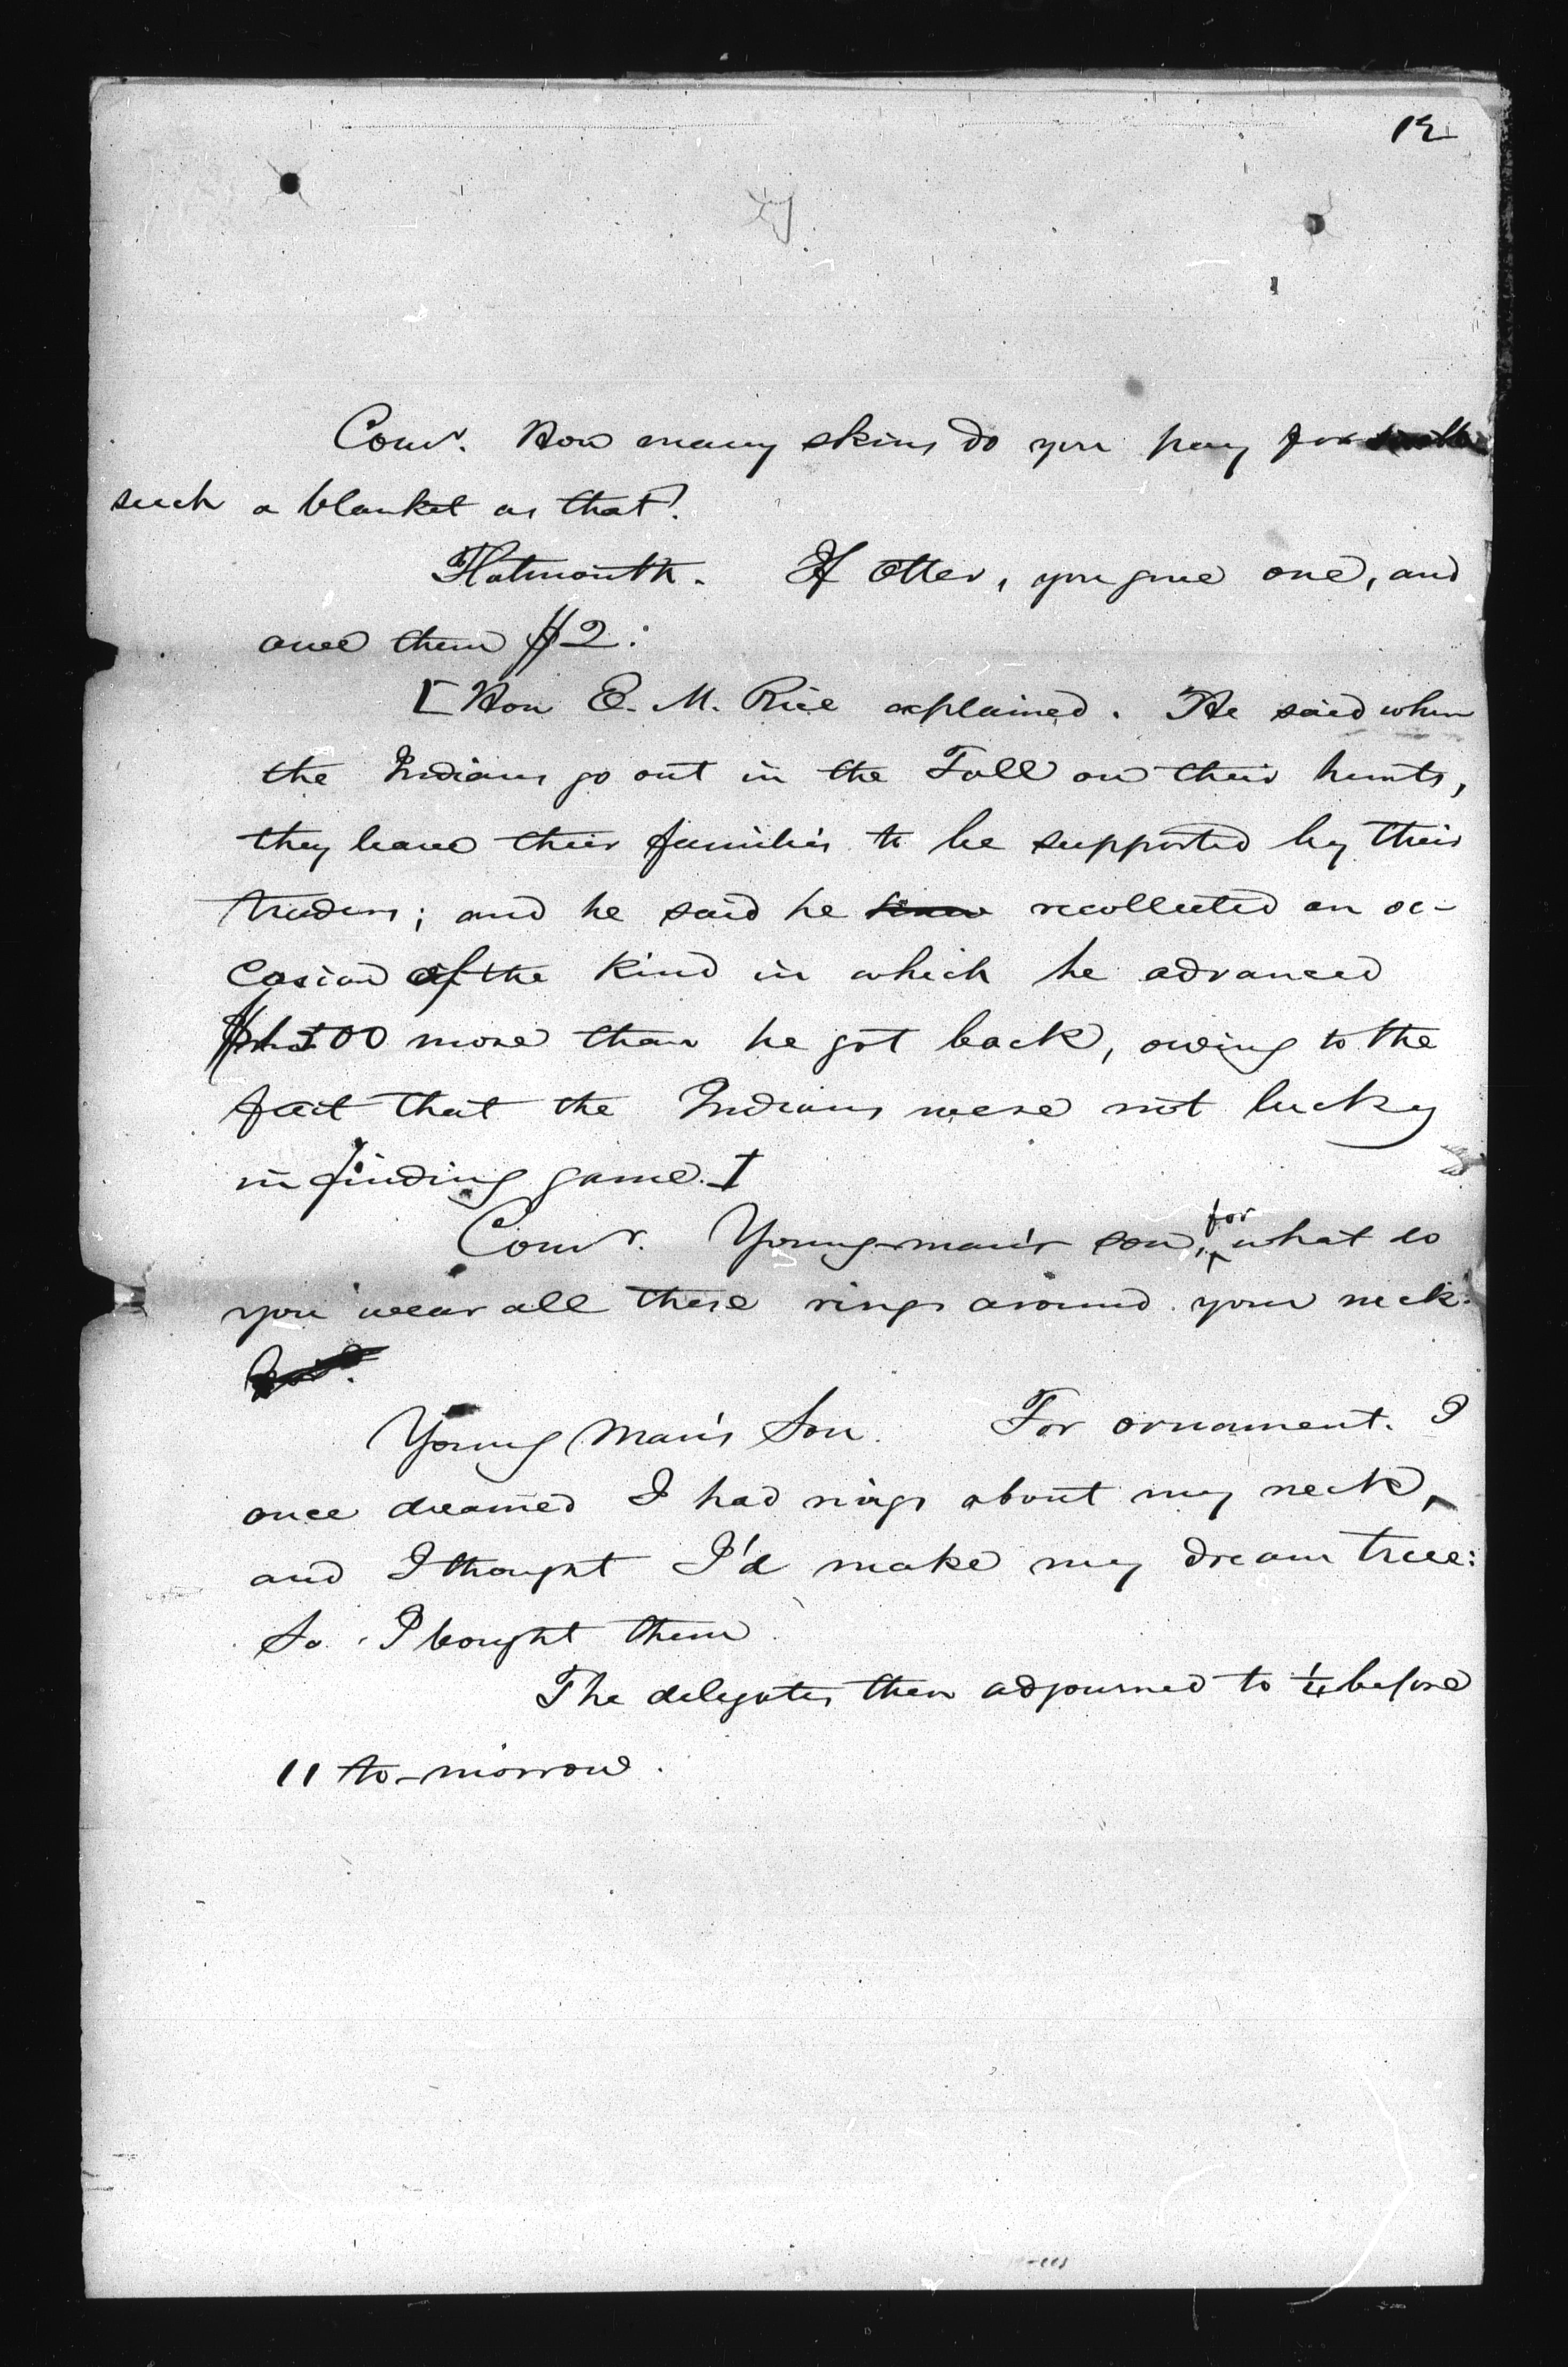 12
Comr. How many skins do you pay for
such a blanket as that?
Flatmouth. If Otter, you give one, and
owe them $2.
[Hon E. M. Rice explained. He said when
the Indians go out in the Fall on their hunts,
they leave their families to be supported by their
traders; and he said he recollected an oc-
casion of the kind in which he advanced
$1500 more than he got back, owing to the
fact that the Indians were not lucky
in finding game.]
Comr. Young-man's son, for what do
you wear all these rings around your neck.
Young Man's Son. For ornament. I
once dreamed I had rings about my neck,
and I thought I'd make my dream true:
So I bought them.
The delegates then adjourned to 1/4 before
11 to-morrow.